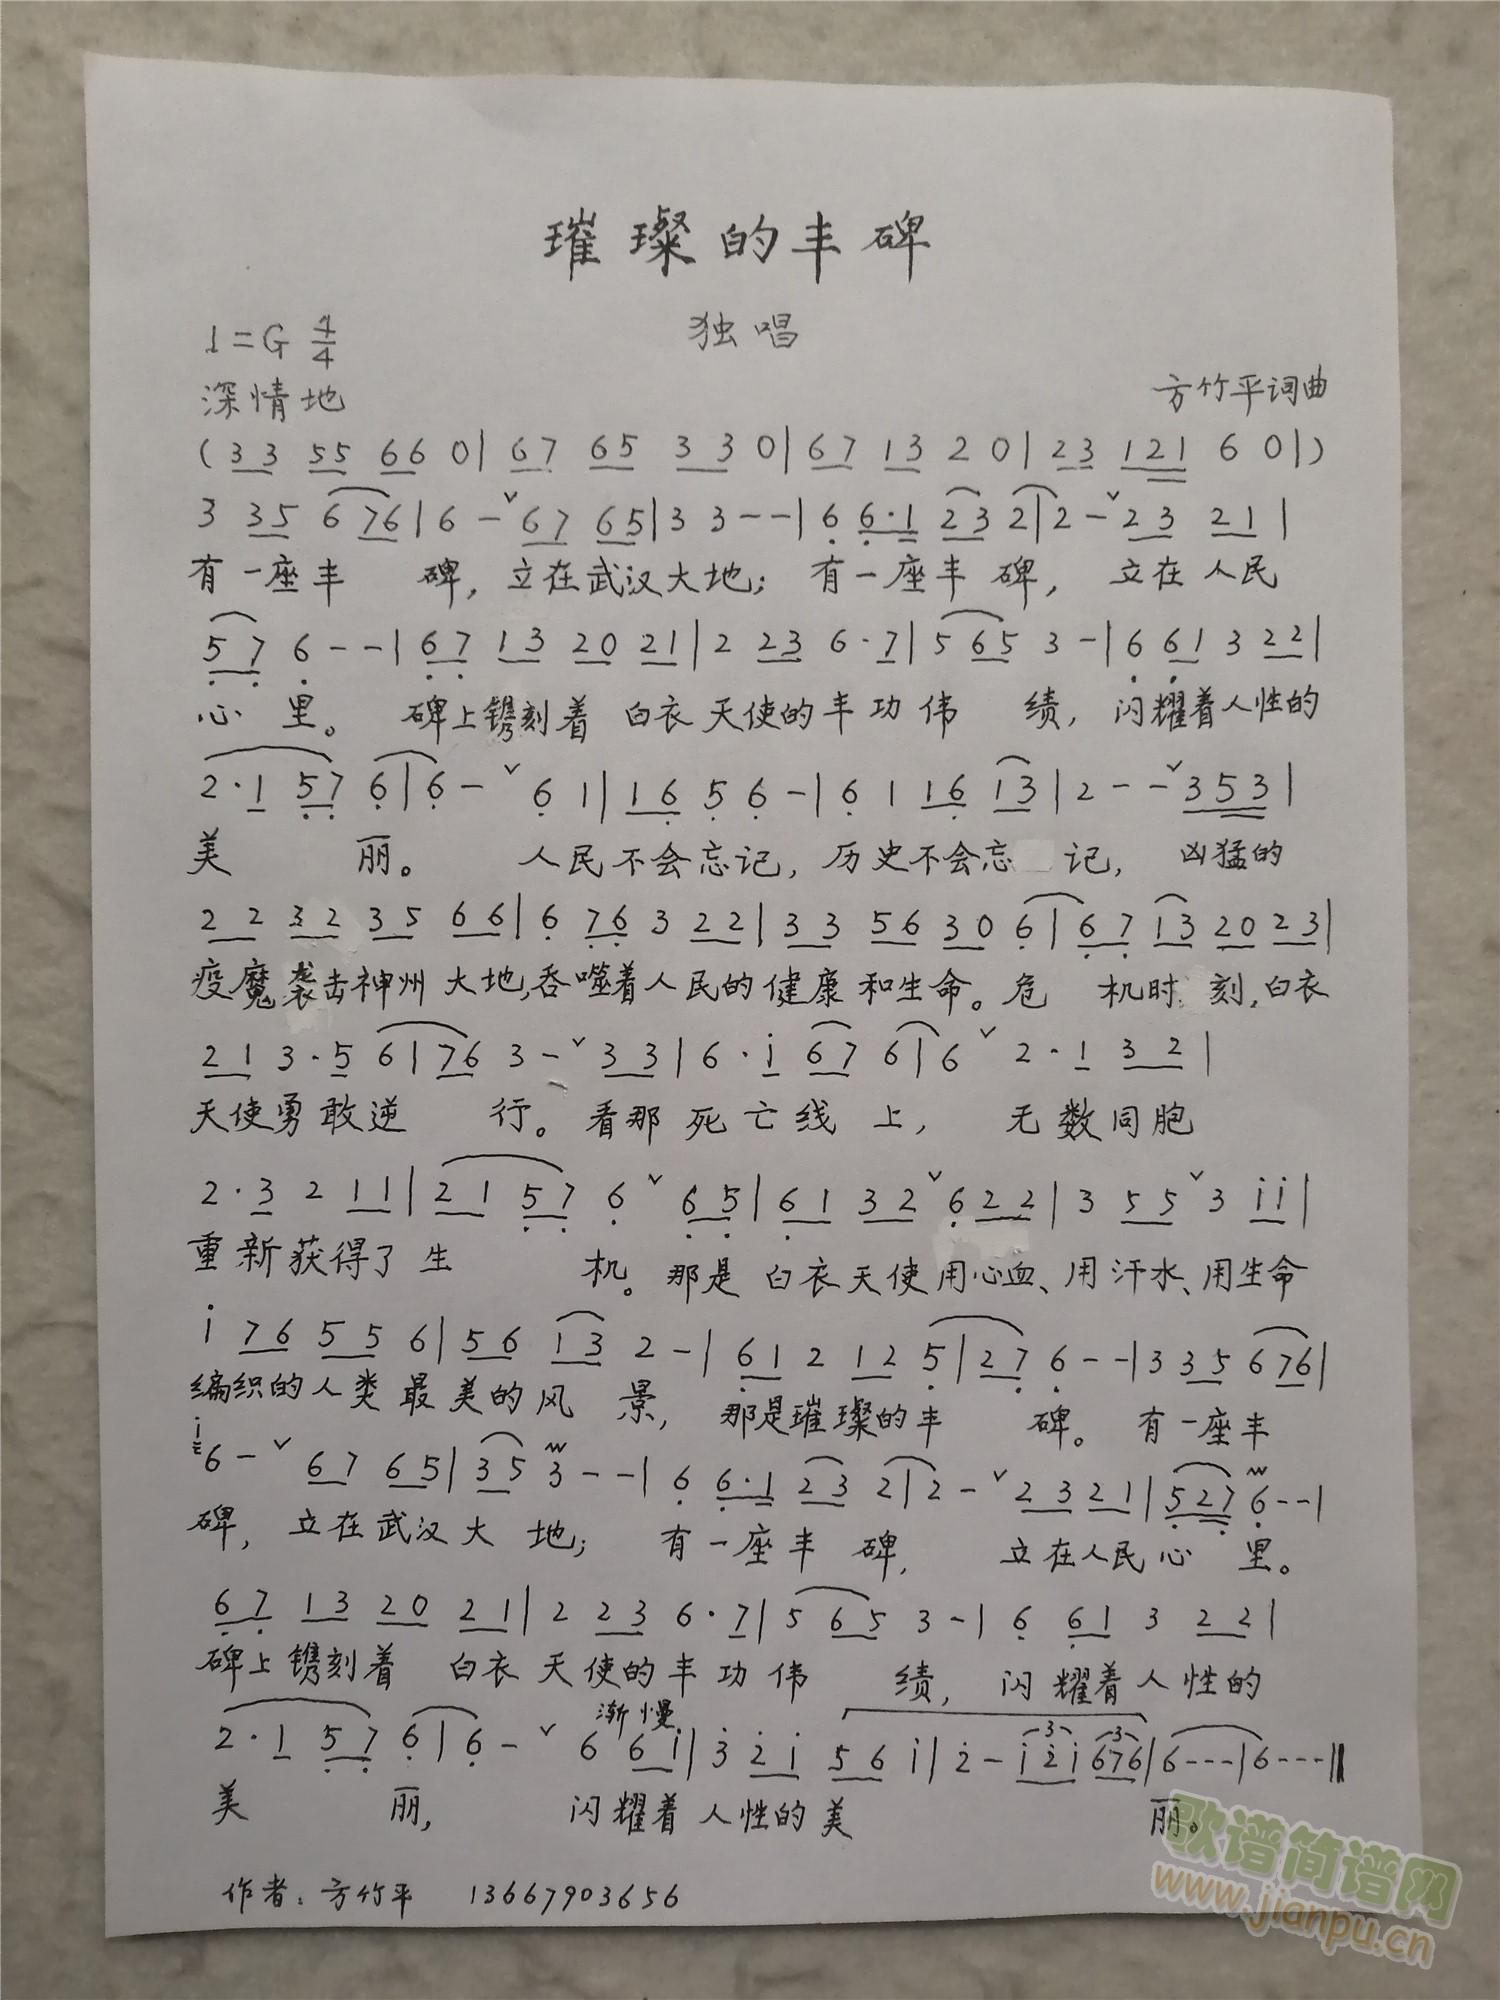 璀璨的丰碑
独唱
1=G 4/4
深情地
方竹平词曲
( 3 3 5 5 6 6 0 | 6 7 6 5 3 3 0 | 6 7 1 3 2 0 | 2 3 1 2 1 6 0 | )
3 3 5 6 7 6 | 6 - ˅ 6 7 6 5 | 3 3 - - | 6 6 · 1 2 3 2 | 2 - ˅ 2 3 2 1 |
有一座丰 碑，立在武汉大地；有一座丰碑，立在人民
5 7 6 - - | 6 7 1 3 2 0 2 1 | 2 2 3 6 · 7 | 5 6 5 3 - | 6 6 1 3 2 2 |
心 里。碑上镌刻着 白衣天使的丰功伟 绩，闪耀着人性的
2 · 1 5 7 6 | 6 - ˅ 6 1 | 1 6 5 6 - | 6 1 1 6 1 3 | 2 - - ˅ 3 5 3 |
美 丽。 人民不会忘记，历史不会忘 记，凶猛的
2 2 3 2 3 5 6 6 | 6 7 6 3 2 2 | 3 3 5 6 3 0 6 | 6 7 1 3 2 0 2 3 |
疫魔袭击神州大地，吞噬着人民的健康和生命。危 机时刻，白衣
2 1 3 · 5 6 | 7 6 3 - ˅ 3 3 | 6 · i 6 7 6 | 6 ˅ 2 · 1 3 2 |
天使勇敢逆 行。看那死亡线上，无数同胞
2 · 3 2 1 1 | 2 1 5 7 6 ˅ 6 5 | 6 1 3 2 ˅ 6 2 2 | 3 5 5 ˅ 3 i i |
重新获得了生 机。那是白衣天使用心血、用汗水、用生命
i 7 6 5 5 6 | 5 6 1 3 2 - | 6 1 2 1 2 5 | 2 7 6 - - | 3 3 5 6 7 6 |
编织的人类最美的风 景，那是璀璨的丰 碑。有一座丰
i 6 - ˅ 6 7 6 5 | 3 5 3 - - | 6 6 · 1 2 3 2 | 2 - ˅ 2 3 2 1 | 5 2 7 6 - - |
碑，立在武汉大 地；有一座丰碑，立在人民心 里。
6 7 1 3 2 0 2 1 | 2 2 3 6 · 7 | 5 6 5 3 - | 6 6 1 3 2 2 |
碑上镌刻着 白衣天使的丰功伟 绩，闪耀着人性的
渐慢
2 · 1 5 7 6 | 6 - ˅ 6 6 i | 3 2 i 5 6 i | 2 - i 2 i 6 7 6 | 6 - - - | 6 - - - ||
美 丽，闪耀着人性的美 丽。
作者：方竹平 13667903656
歌谱简谱网
www.jianpu.cn